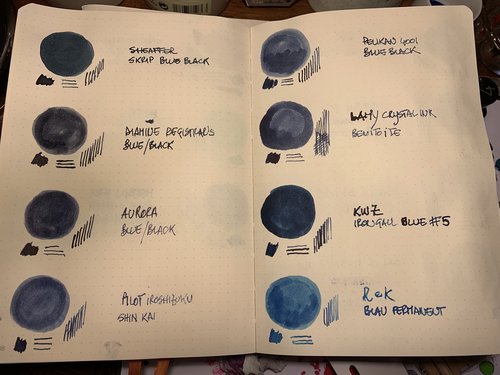 SHEAFFER
SKRIP BLUE BLACK
DIAMINE REGISTRAR'S
BLUE/BLACK
AURORA
BLUE/BLACK
PILOT IROSHIZUKU
SHIN KAI
PELIKAN 4001
BLUE BLACK
LAMY CRYSTAL INK
BENITOITE
KWZ
IRON GALL BLUE #5
R&K
BLAU PERMANENT